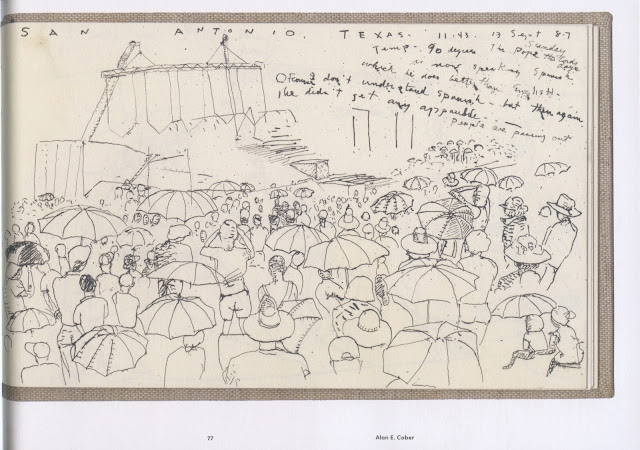 SAN ANTONIO, TEXAS. 11.43. 13 Sept 87
Sunday
Temp. 90 degrees The Pope the Lords
is now speaking Spanish
which he does better than English.
I don't understand Spanish - but then again
he didn't get any
People are passing out
77 Alan E. Cober